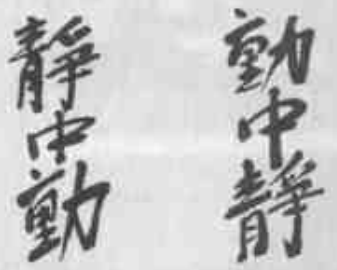 動中靜
靜中動